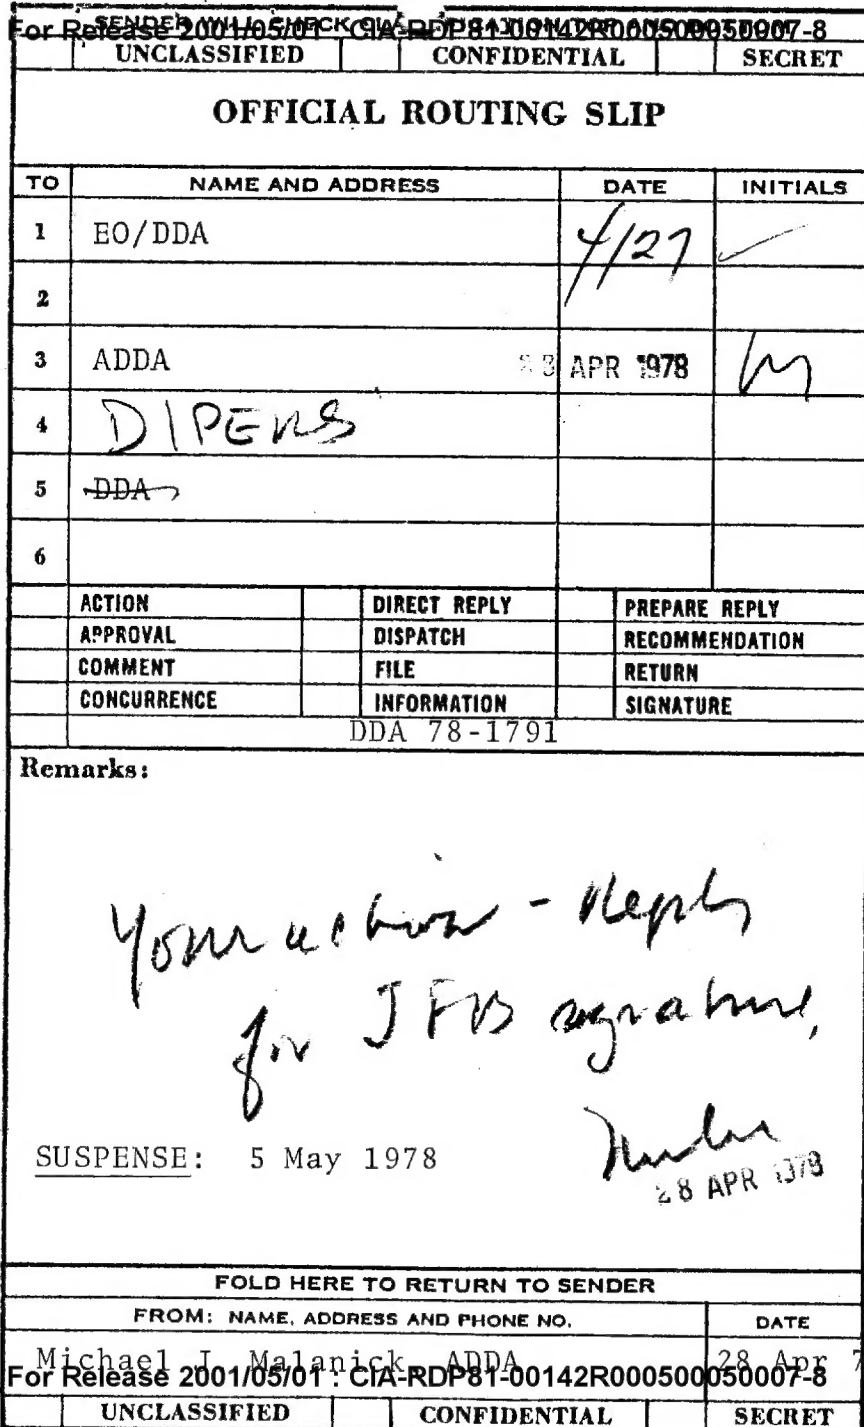 SENDER WILL CHECK CLASSIFICATION TOP AND BOTTOM
For Release 2001/05/01 : CIA-RDP81-00142R000500050007-8
UNCLASSIFIED CONFIDENTIAL SECRET
OFFICIAL ROUTING SLIP
TO NAME AND ADDRESS DATE INITIALS
1 EO/DDA 4/27
2
3 ADDA 28 APR 1978 M
4 D/PERS
5 DDA
6
ACTION DIRECT REPLY PREPARE REPLY
APPROVAL DISPATCH RECOMMENDATION
COMMENT FILE RETURN
CONCURRENCE INFORMATION SIGNATURE
DDA 78-1791
Remarks:
Your action - Reply
for JFB signature,
SUSPENSE: 5 May 1978
28 APR 1978
FOLD HERE TO RETURN TO SENDER
FROM: NAME, ADDRESS AND PHONE NO. DATE
Michael J. Malanick, ADDA 28 Apr 7
For Release 2001/05/01 : CIA-RDP81-00142R000500050007-8
UNCLASSIFIED CONFIDENTIAL SECRET